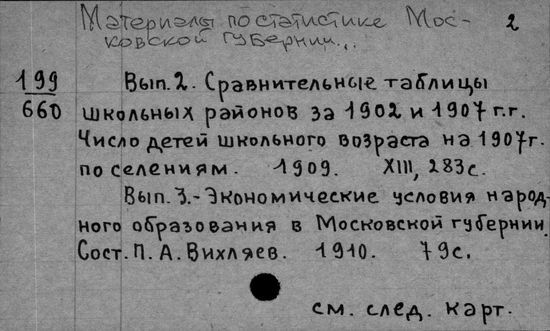 Материалы по статистике Мос- 2
ковской губернии...
199 Вып. 2. Сравнительные таблицы
660 школьных районов за 1902 и 1907 г.г.
Число детей школьного возраста на 1907г.
по селениям. 1909. XIII, 283с.
Вып. 3.- Экономические условия народ-
ного образования в Московской губернии.
Сост. П. А. Вихляев. 1910. 79с.
см. след. карт.